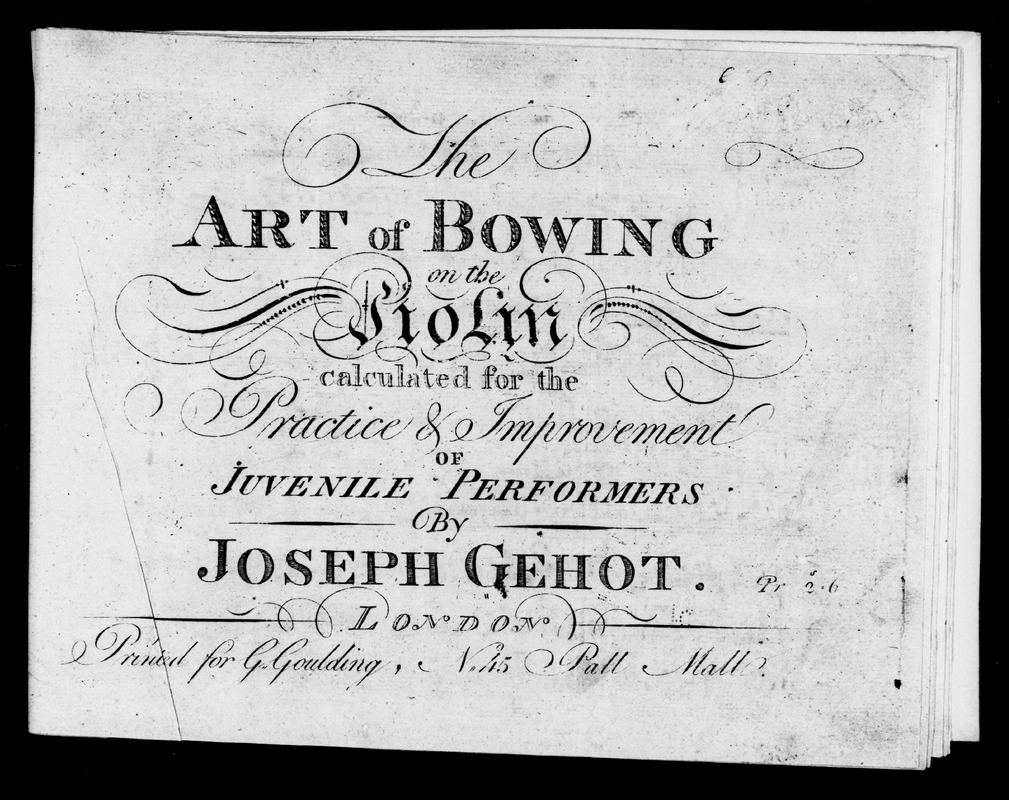 The
ART of BOWING
on the
Violin
calculated for the
Practice & Improvement
OF
JUVENILE PERFORMERS
By
JOSEPH GEHOT.
Pr 2s.6
LONDON
Printed for G. Goulding, No. 45 Pall Mall.